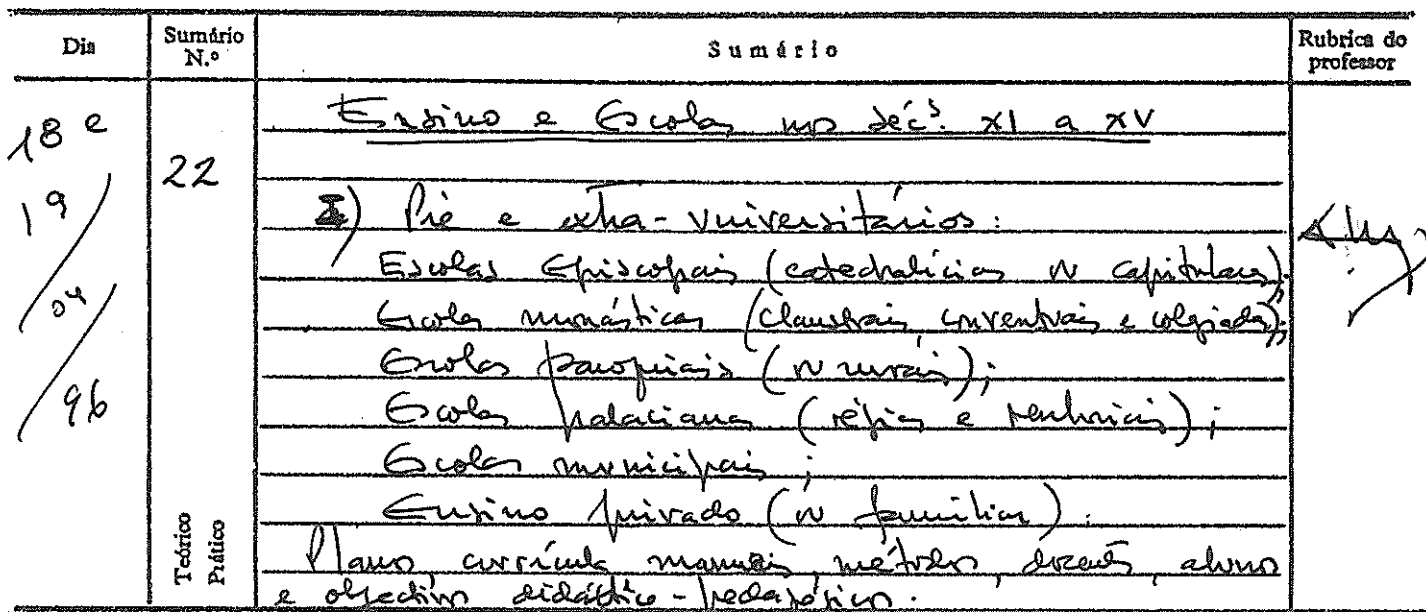 Dia
Sumário N.º
Sumário
Rubrica do professor
18 e 19/04/96
22
Teórico Prático
Ensino e Escolas nos séc.s XI a XV
I) Pré e extra-Universitários:
Escolas Episcopais (catedralícias ou capitulares);
Escolas monásticas (claustrais, conventuais e colegiadas);
Escolas paroquiais (ou rurais);
Escolas palacianas (régias e senhoriais);
Escolas municipais;
Ensino privado (ou familiar).
Planos, curricula, manuais, métodos, docentes, alunos
e objectivos didáctico-pedagógicos.